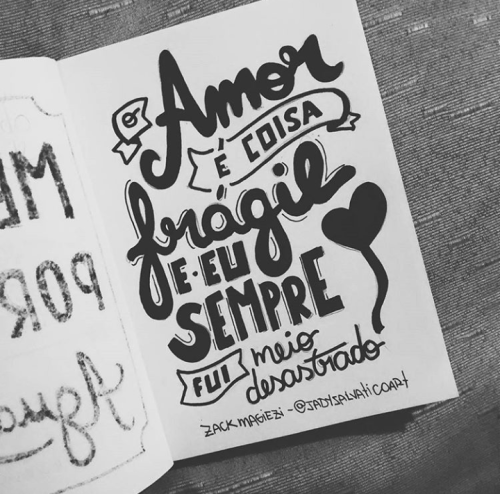 o
Amor
É COISA
frágil
E·EU
SEMPRE
FUI meio
desastrado
ZACK MAGIEZI - @JADYSALVATICOART